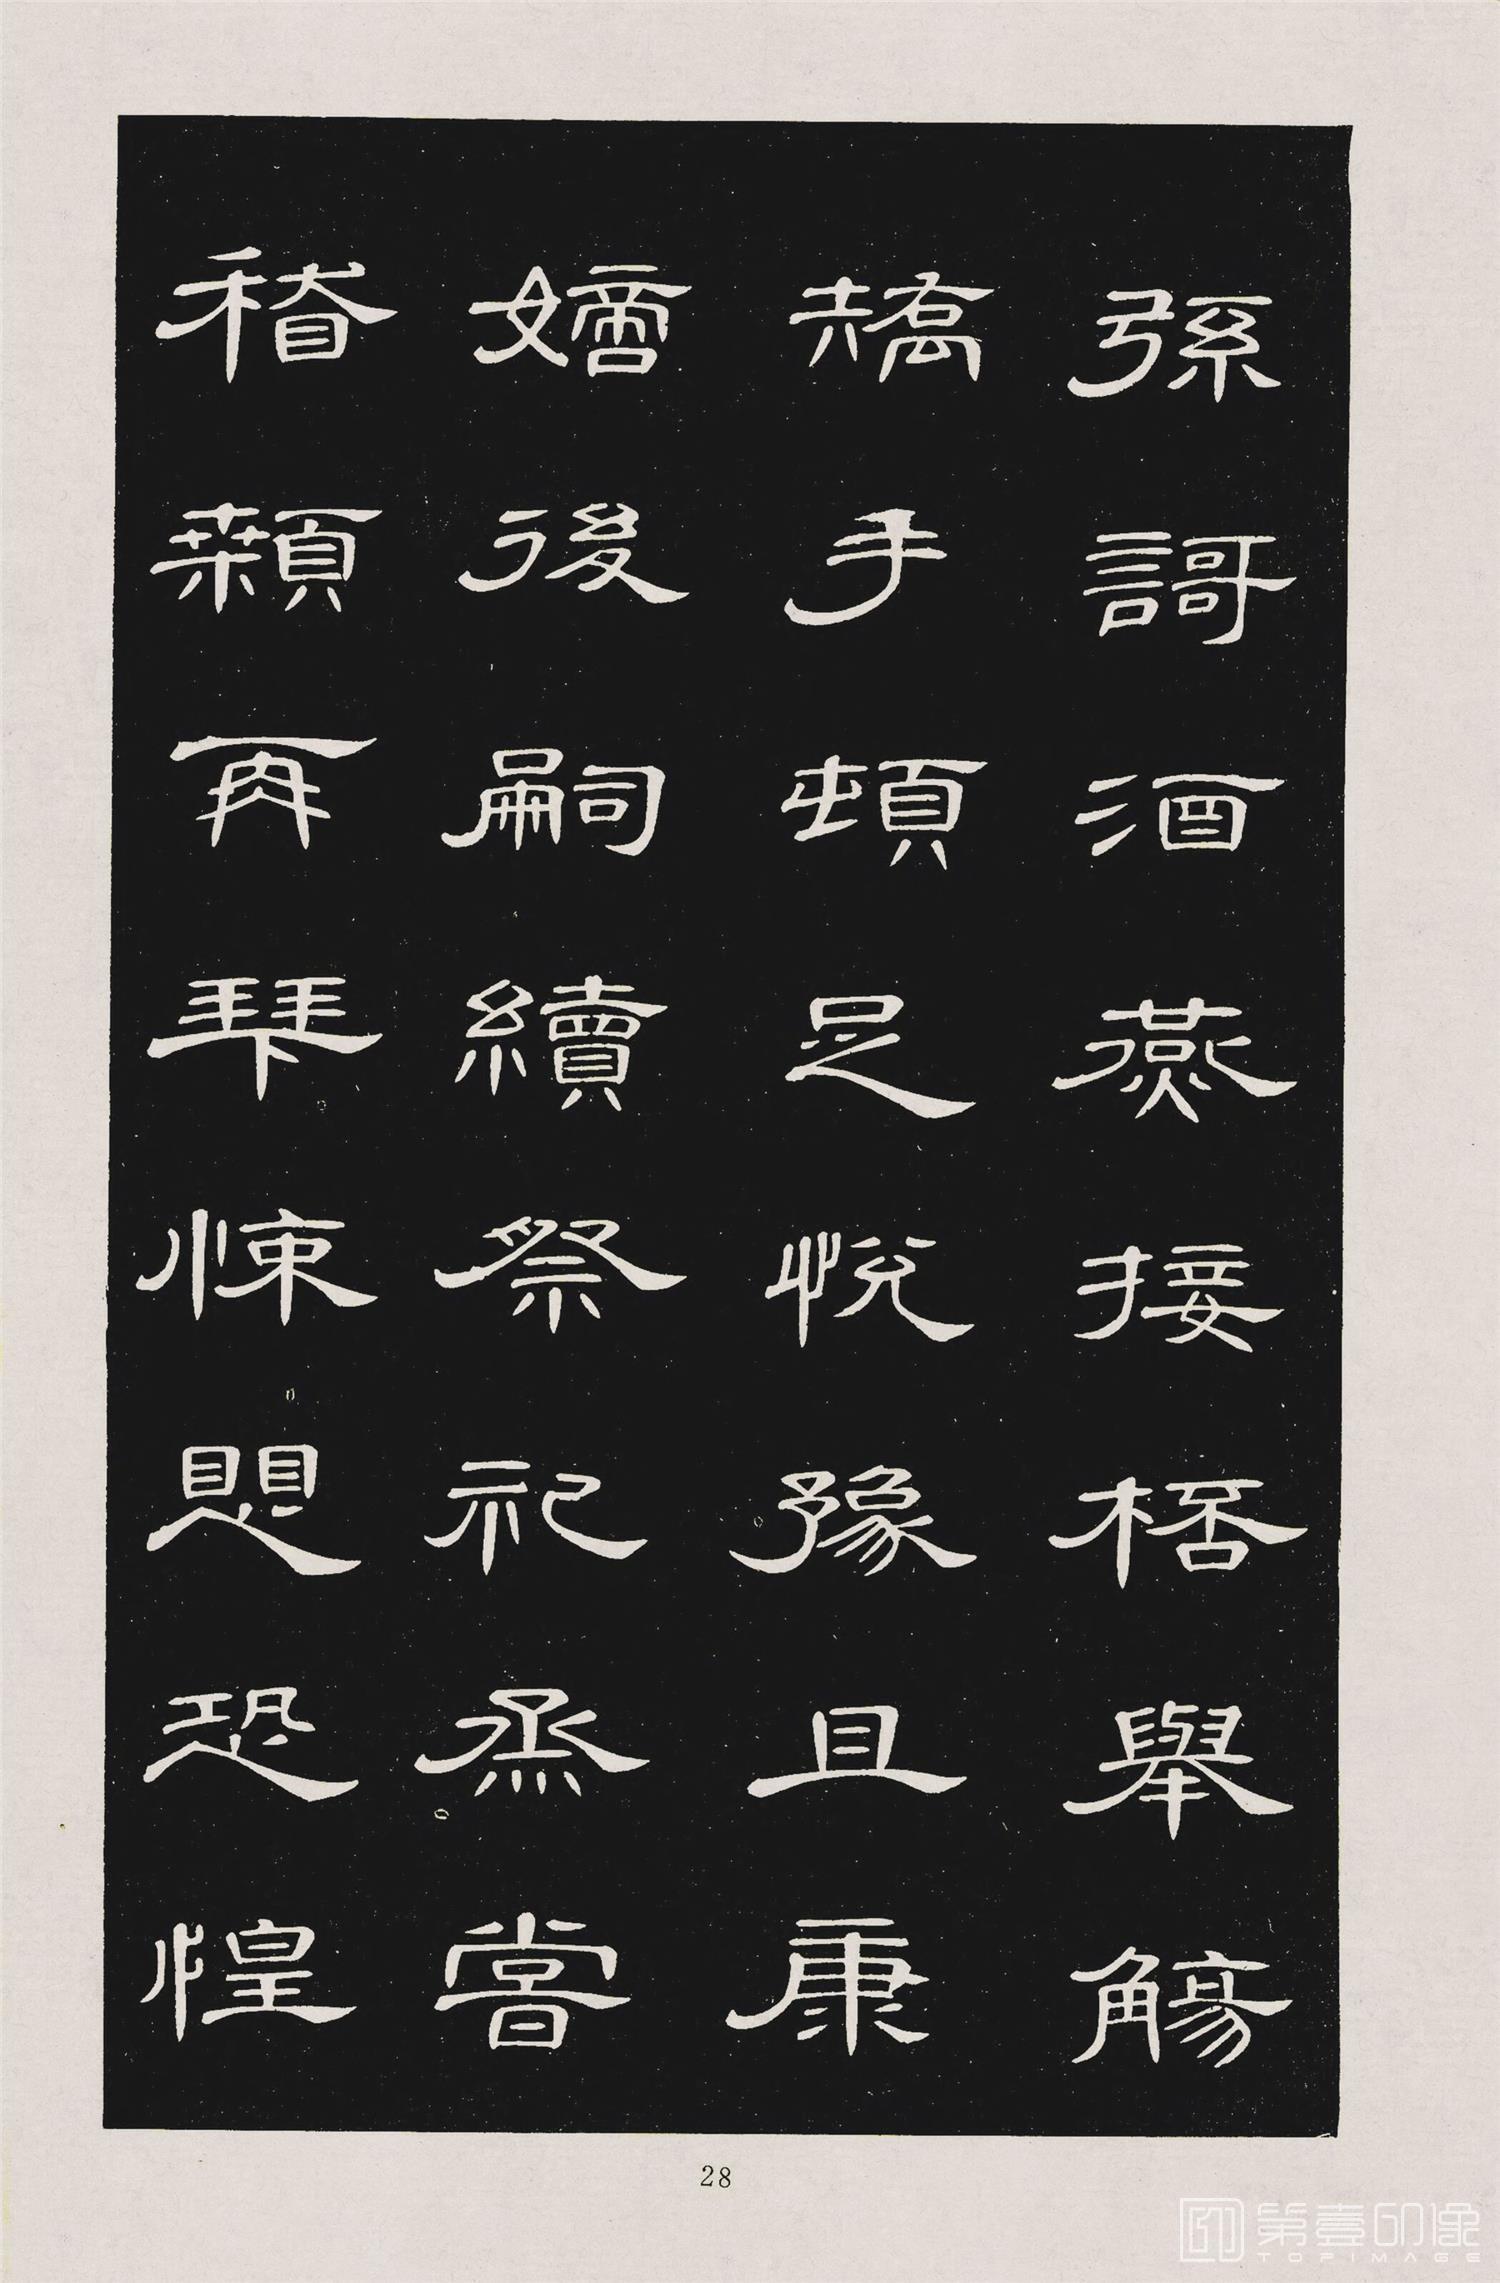 弦謌酒燕接桮舉觴
矯手頓足悅豫且康
嫡後嗣續祭祀烝嘗
稽顙再拜悚懼恐惶
28
第壹印像
TOPIMAGE